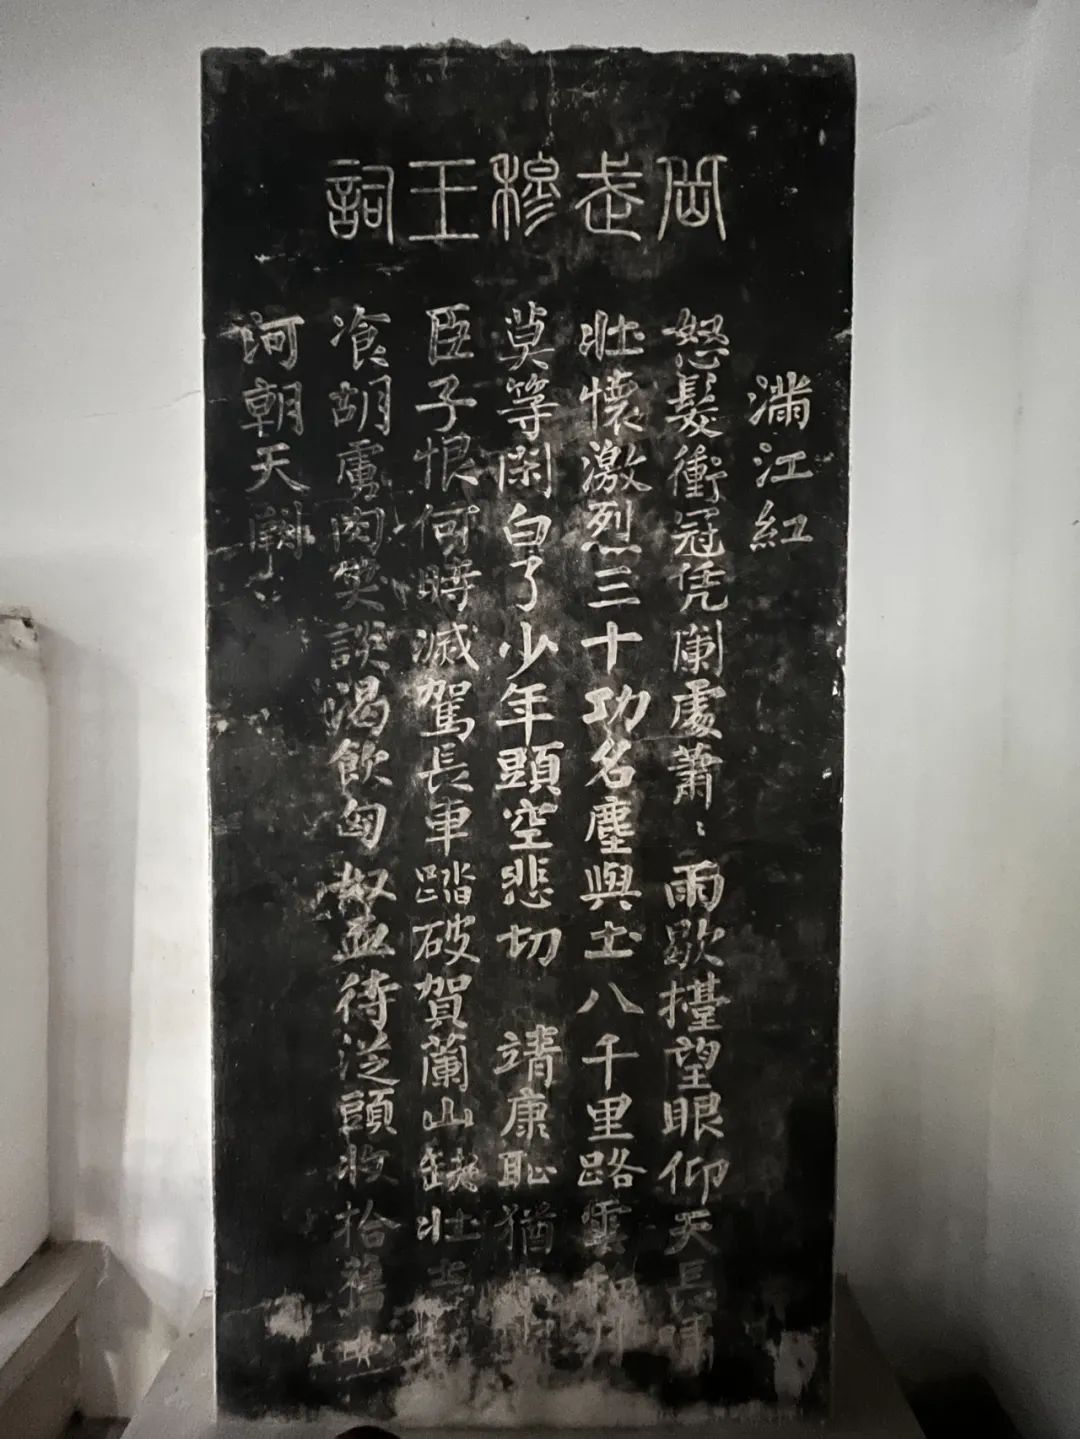 岳武穆王詞
滿江紅
怒髮衝冠凭闌處蕭〻雨歇擡望眼仰天長嘯
壯懷激烈三十功名塵與土八千里路雲和月
莫等閑白了少年頭空悲切 靖康恥猶
臣子恨何時滅駕長車踏破賀蘭山缺壯士
飡胡虜肉笑談渴飲匈奴血待從頭收拾舊
河朝天闕